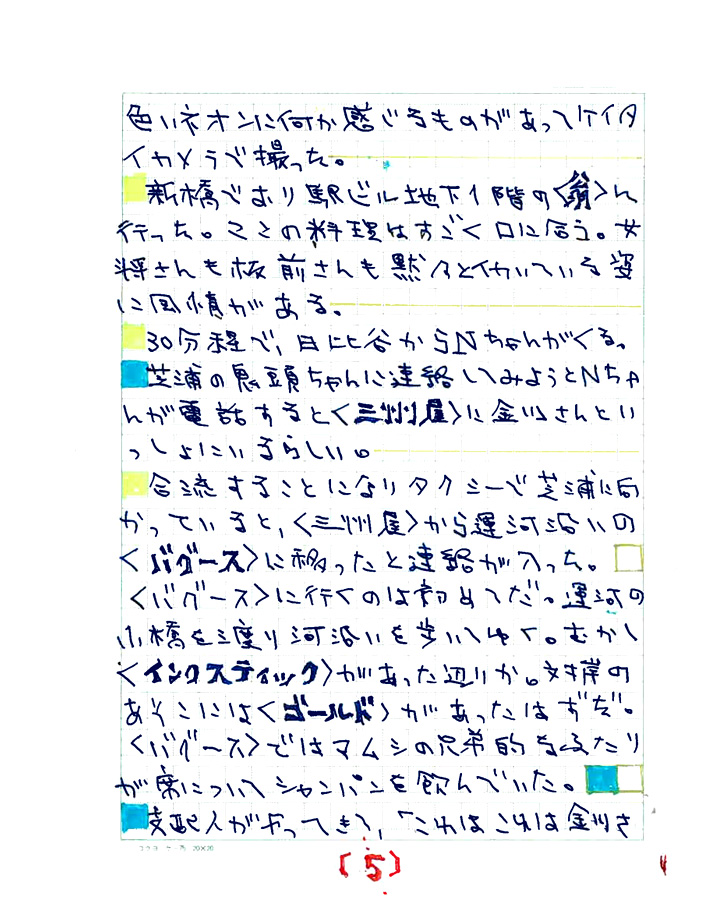 色いネオンに何か感じるものがあってケイタ
イカメラで撮った。
新橋でおり駅ビル地下1階の〈翁〉へ
行った。ここの料理はすごく口に合う。女
将さんも板前さんも黙々と働いている姿
に風情がある。
30分程で、日比谷からNちゃんがくる。
芝浦の鬼頭ちゃんに連絡してみようとNちゃ
んが電話すると〈三州屋〉に金川さんとい
っしょにいるらしい。
合流することになりタクシーで芝浦に向
かっていると、〈三州屋〉から運河沿いの
〈バグース〉に移ったと連絡が入った。
〈バグース〉に行くのは初めてだ。運河の
小橋を渡り河沿いを歩いてゆく。むかし
〈インクスティック〉があった辺りか。対岸の
あそこには〈ゴールド〉があったはずだ。
〈バグース〉ではマムシの兄弟的なふたり
が席についてシャンパンを飲んでいた。
支配人がやってきて、「これはこれは金川さ
コクヨ ケ-75 20×20
(5)